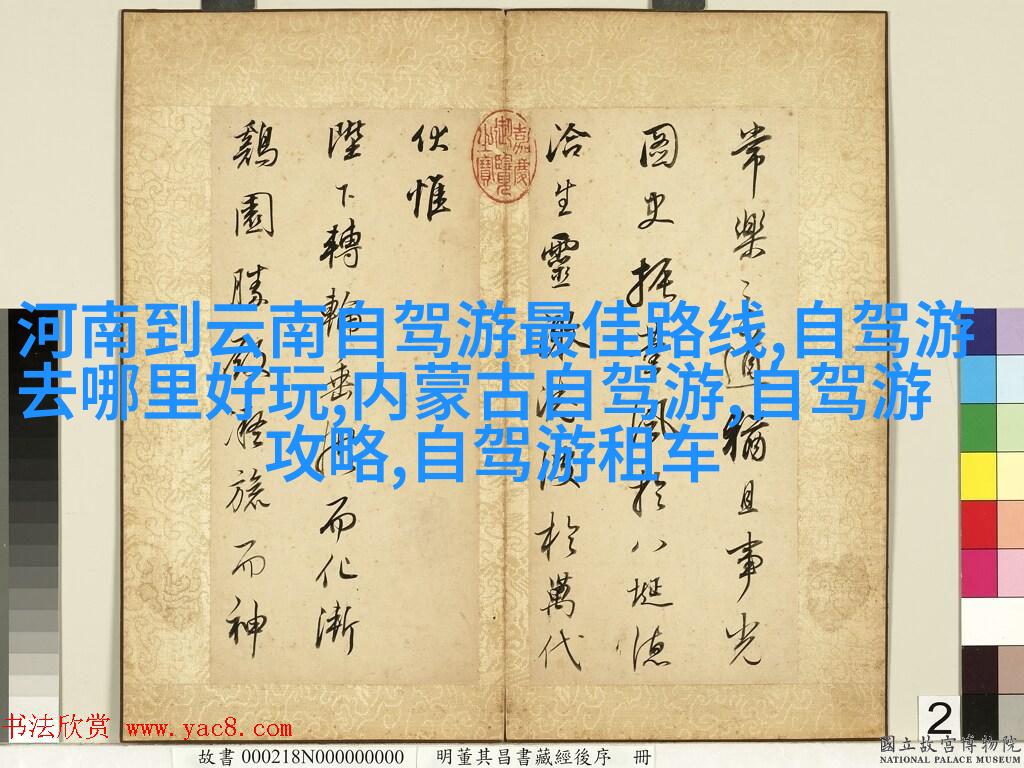 常樂之道猶且事光
圖史振風於八埏德
洽生靈流於萬代
嘉慶御覽之寶
伏惟
陛下轉輪垂拱而化漸
鷄園勝殿凝旒而神
河南到云南自驾游最佳路线,自驾游
去哪里好玩,内蒙古自驾游,自驾游
攻略,自驾游租车
2
书法欣赏 www.yac8.com
故書 000218N000000000 明董其昌書藏經後序 冊
國立故宮博物院
NATIONAL PALACE MUSEUM